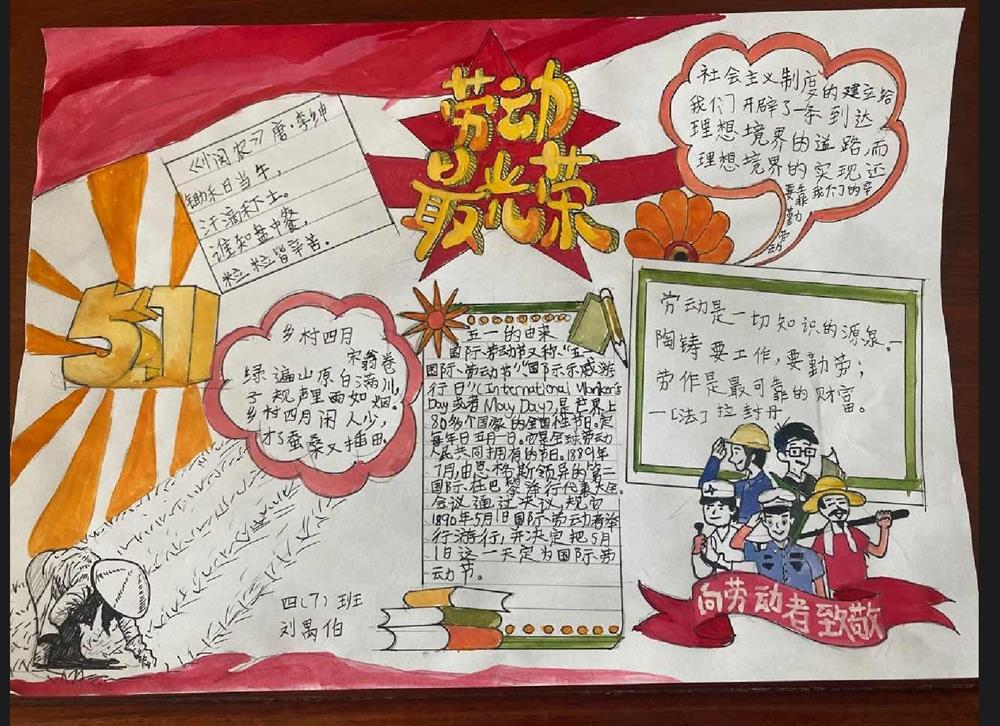 劳动
最光荣
《悯农》唐·李绅
锄禾日当午，
汗滴禾下土。
谁知盘中餐，
粒粒皆辛苦。
社会主义制度的建立给
我们开辟了一条到达
理想境界的道路，而
理想境界的实现还
要靠我们的辛
勤
劳动
51
乡村四月
宋翁卷
绿遍山原白满川，
子规声里雨如烟。
乡村四月闲人少，
才了蚕桑又插田。
五一的由来
国际劳动节又称“五一
国际劳动节”“国际示威游
行日”(International Worker's
Day或者May Day),是世界上
80多个国家的全国性节日。定
每年日五月一日。它是全球劳动
人民共同拥有的节日。1889年
7月，由恩格斯领导的第二
国际，在巴黎举行代表大会。
会议通过决议，规定
1890年5月1日国际劳动者举
行游行，并决定把5月
1日这一天定为国际劳
动节。
劳动是一切知识的源泉。一
陶铸 要工作，要勤劳；
劳作是最可靠的财富。
一[法]拉封丹
四(7)班
刘禺伯
向劳动者致敬